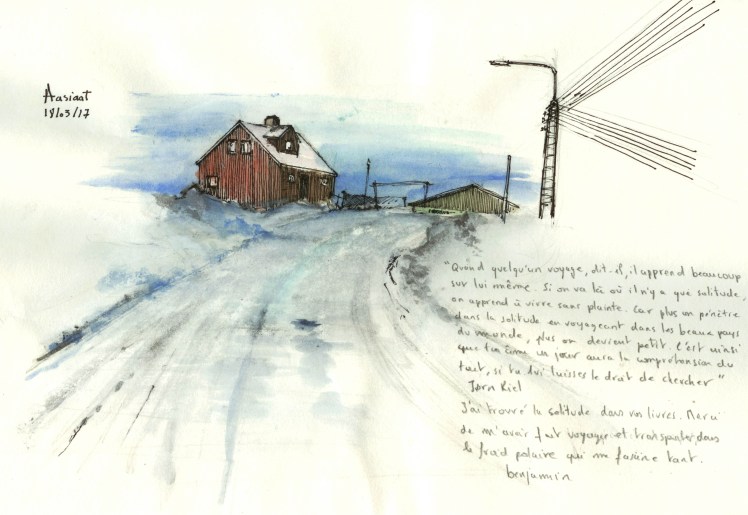 Aasiaat
18/03/17
"Quand quelqu'un voyage, dit-il, il apprend beaucoup
sur lui même. Si on va là où il n'y a que solitude
on apprend à vivre sans plainte. Car plus on pénètre
dans la solitude en voyageant dans les beaux pays
du monde, plus on devient petit. C'est ainsi
que ton âme un jour aura la compréhension du
tout, si tu lui laisses le droit de chercher"
Jørn Riel
J'ai trouvé la solitude dans vos livres. Merci
de m'avoir fait voyager et transporter dans
le froid polaire qui me fascine tant.
benjamin